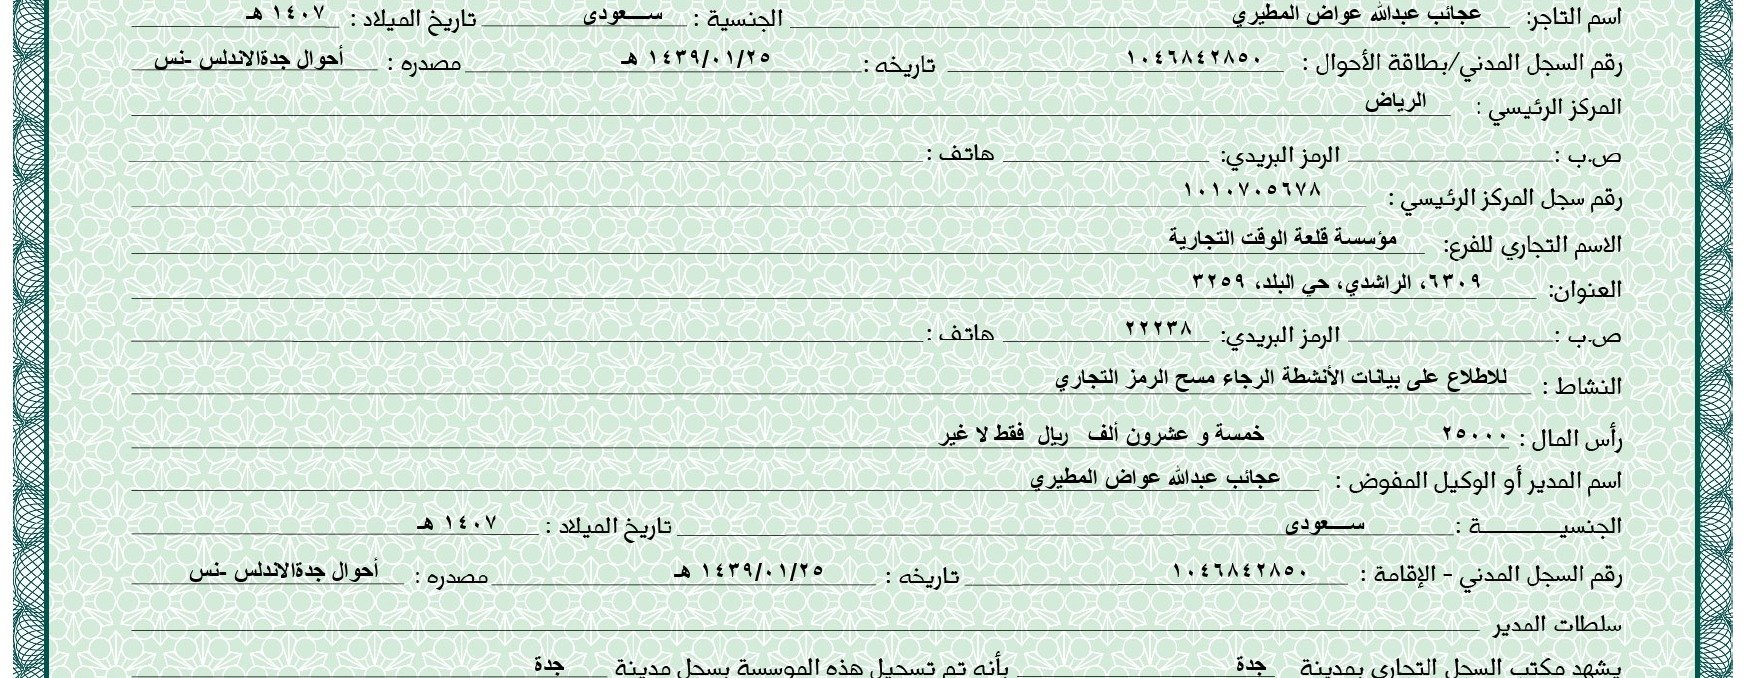 اسم التاجر: عجائب عبدالله عواض المطيري الجنسية : ســـعودى تاريخ الميلاد : ١٤٠٧ هـ
رقم السجل المدني/بطاقة الأحوال : ١٠٤٦٨٤٢٨٥٠ تاريخه : ١٤٣٩/٠١/٢٥ هـ مصدره : أحوال جدةالاندلس -نس
المركز الرئيسي : الرياض
ص.ب : الرمز البريدي: هاتف :
رقم سجل المركز الرئيسي : ١٠١٠٧٠٥٦٧٨
الاسم التجاري للفرع: مؤسسة قلعة الوقت التجارية
العنوان: ٦٣٠٩، الراشدي، حي البلد، ٣٢٥٩
ص.ب : الرمز البريدي: ٢٢٢٣٨ هاتف :
النشاط : للاطلاع على بيانات الأنشطة الرجاء مسح الرمز التجاري
رأس المال : ٢٥٠٠٠ خمسة و عشرون ألف ريال فقط لا غير
اسم المدير أو الوكيل المفوض : عجائب عبدالله عواض المطيري
الجنسيـــــــة : ســـعودى تاريخ الميلاد : ١٤٠٧ هـ
رقم السجل المدني - الإقامة : ١٠٤٦٨٤٢٨٥٠ تاريخه : ١٤٣٩/٠١/٢٥ هـ مصدره : أحوال جدةالاندلس -نس
سلطات المدير
يشهد مكتب السجل التجاري بمدينة جدة بأنه تم تسجيل هذه الموسسة بسجل مدينة جدة